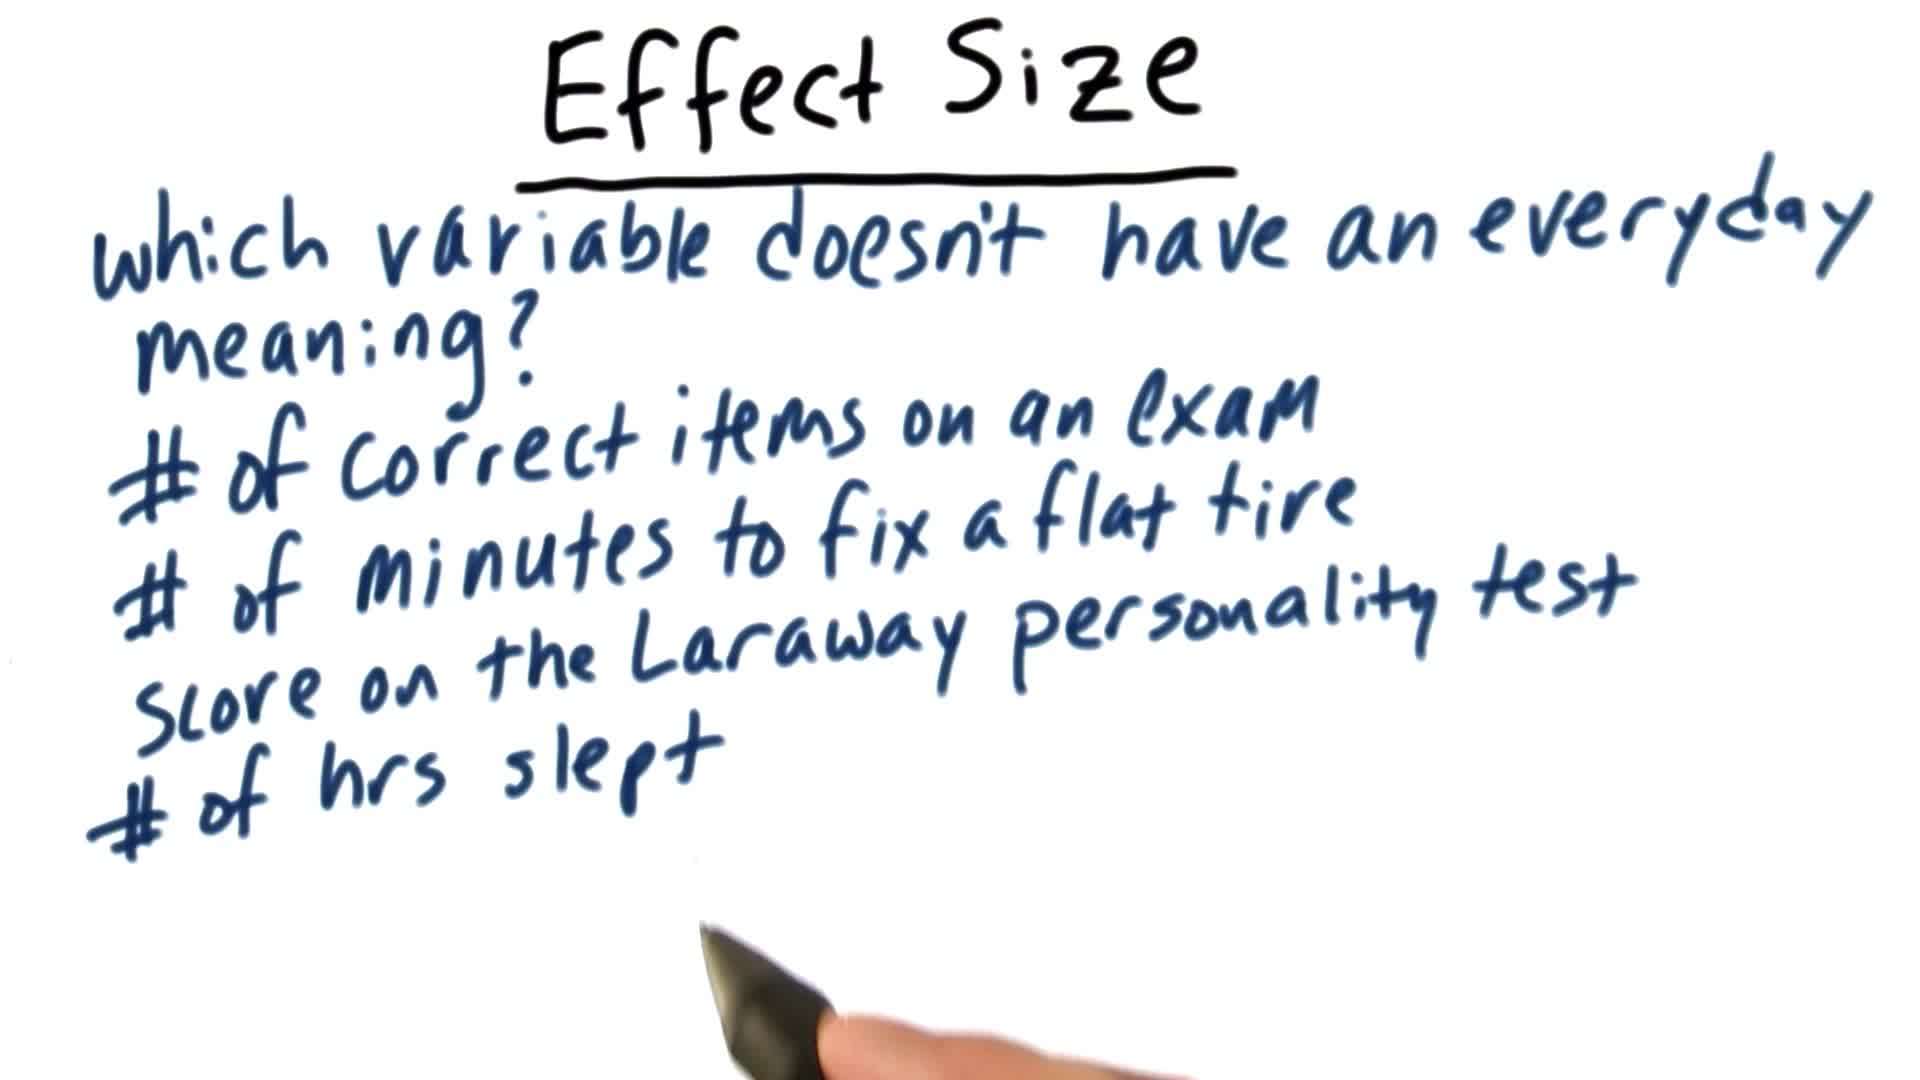 Effect Size
which variable doesn't have an everyday
meaning?
# of correct items on an exam
# of minutes to fix a flat tire
score on the Laraway personality test
# of hrs slept